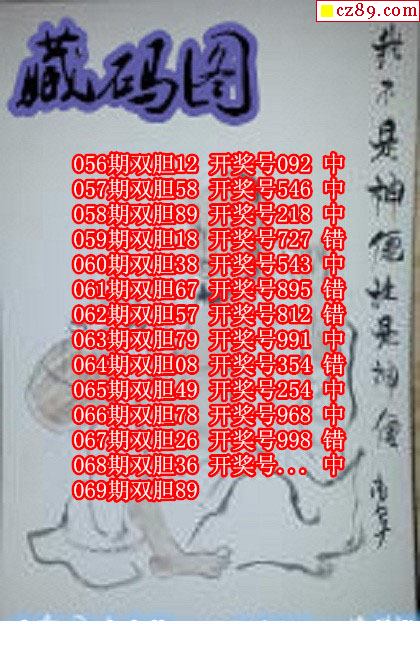 cz89.com
藏码图
我不是神但社是神僧
056期双胆12 开奖号092 中
057期双胆58 开奖号546 中
058期双胆89 开奖号218 中
059期双胆18 开奖号727 错
060期双胆38 开奖号543 中
061期双胆67 开奖号895 错
062期双胆57 开奖号812 错
063期双胆79 开奖号991 中
064期双胆08 开奖号354 错
065期双胆49 开奖号254 中
066期双胆78 开奖号968 中
067期双胆26 开奖号998 错
068期双胆36 开奖号... 中
069期双胆89